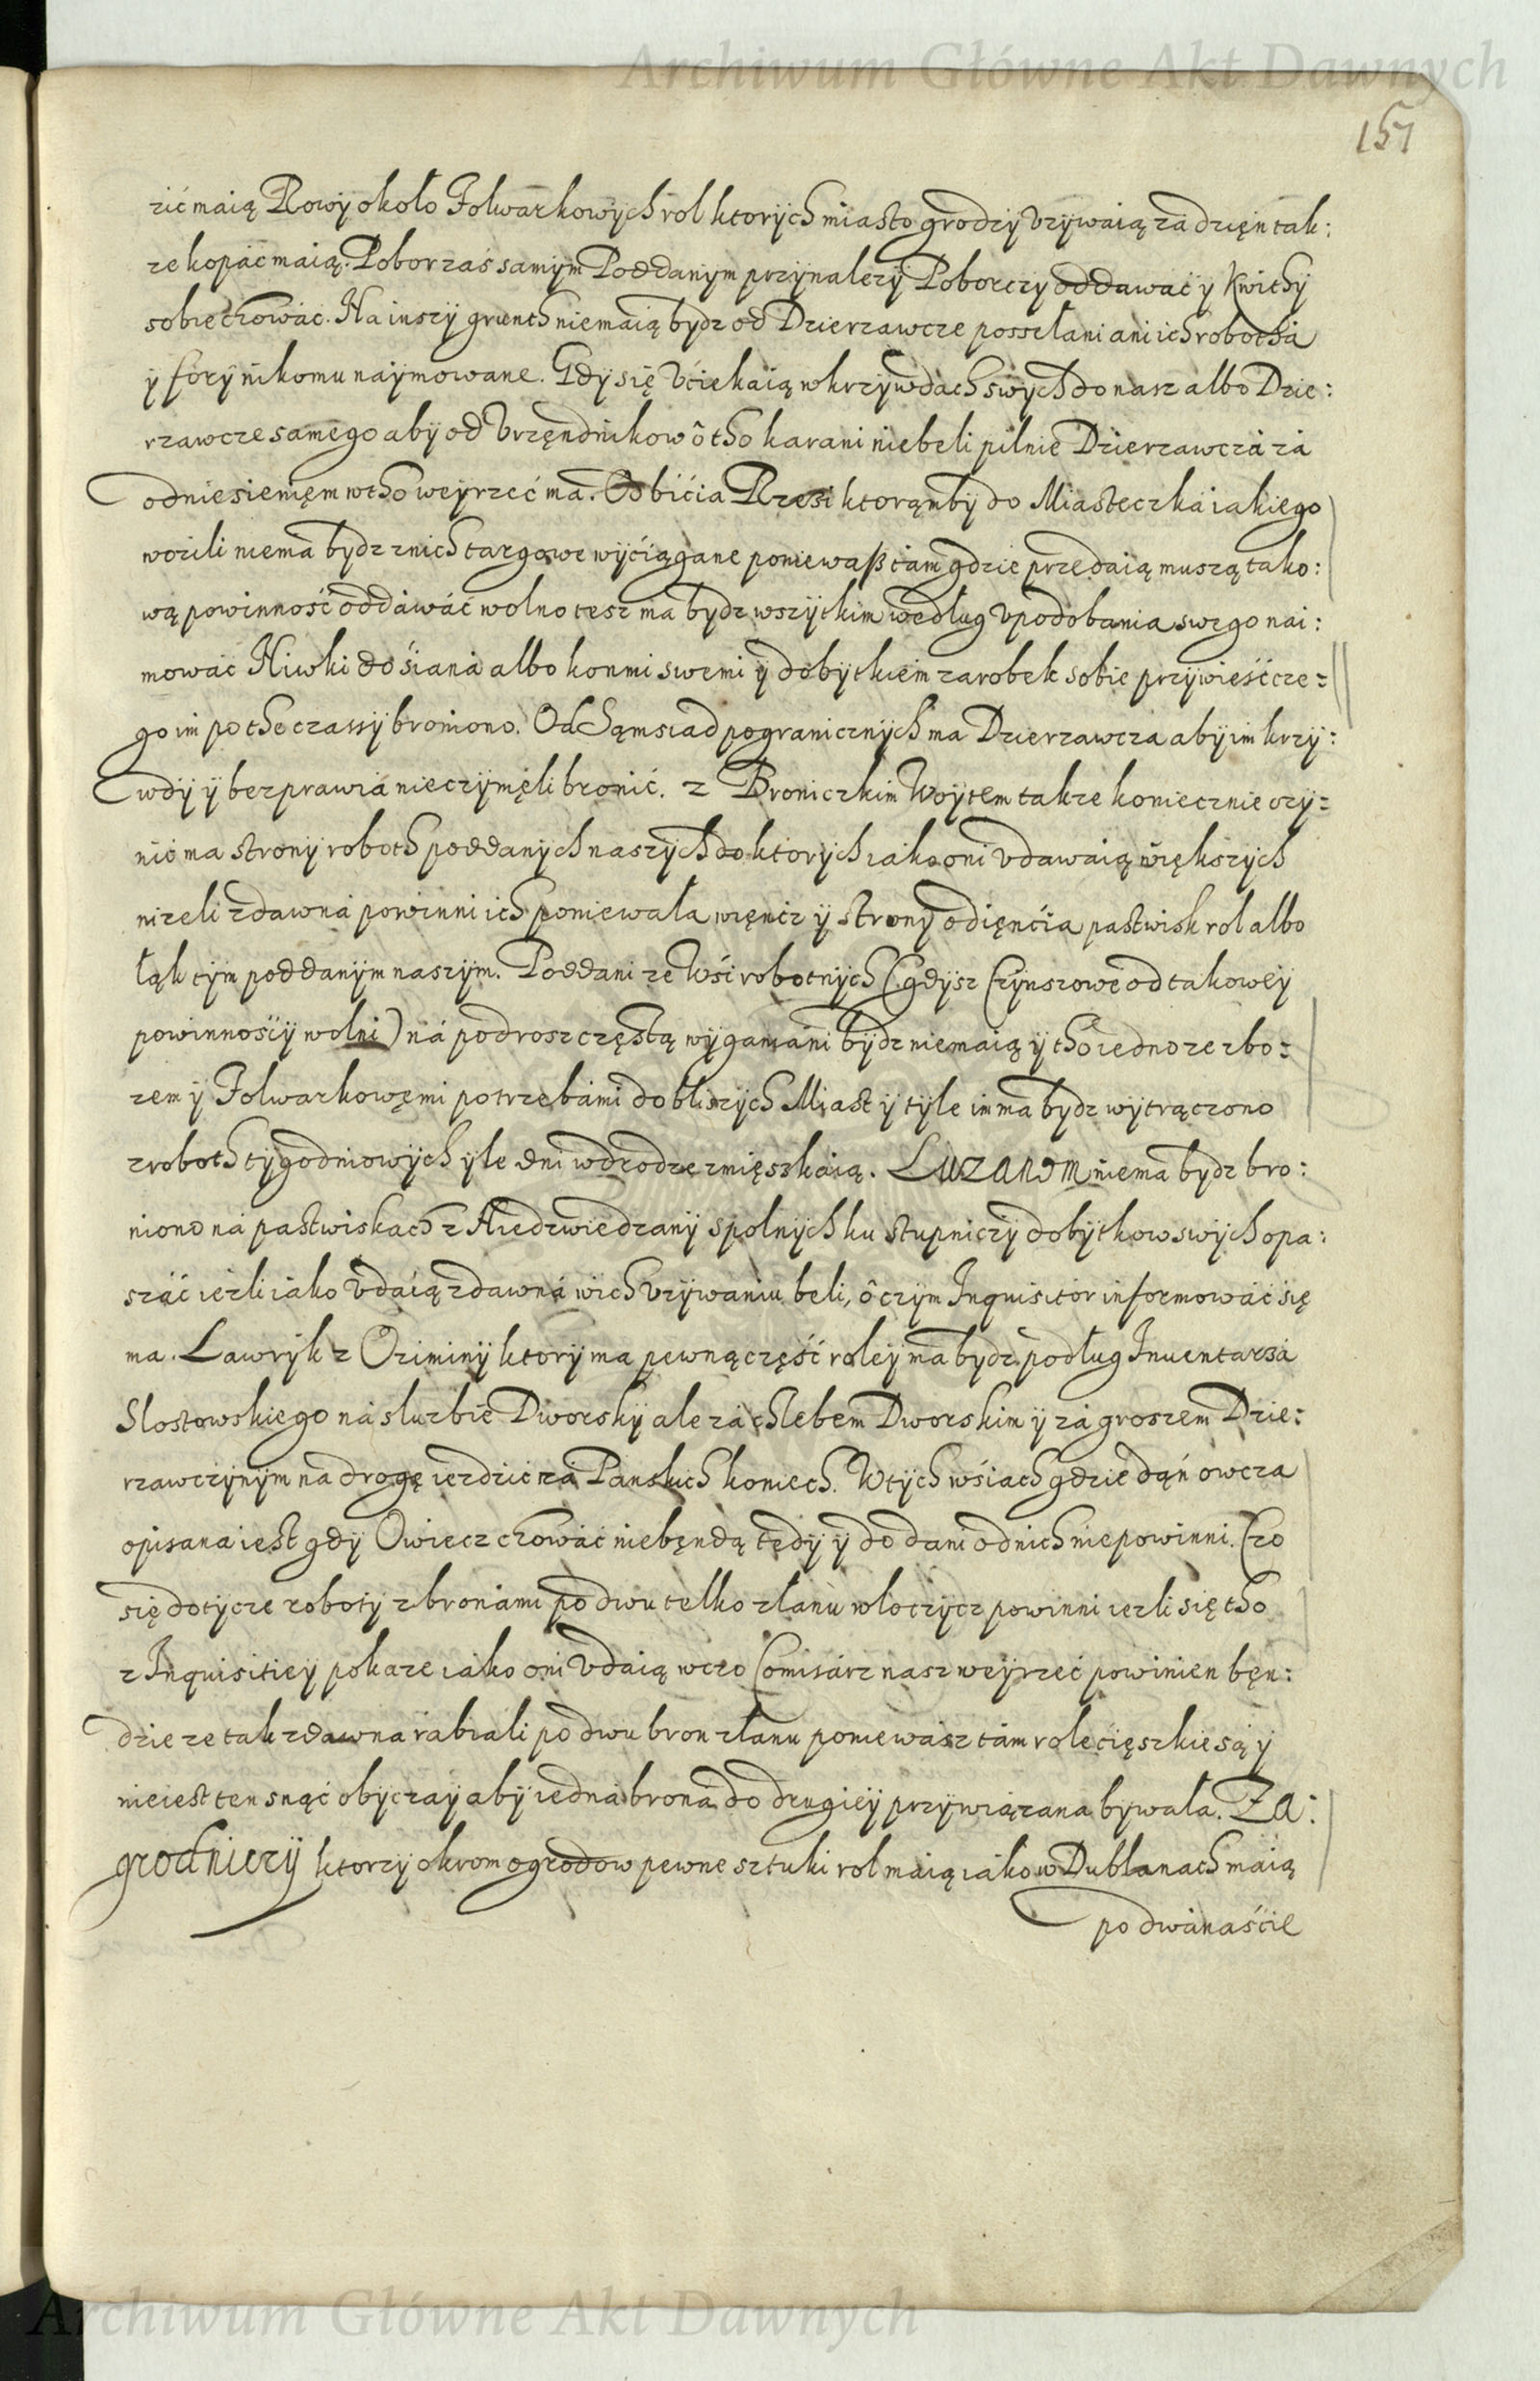 Archiwum Główne Akt Dawnych
151
zić maią Rowÿ około Folwarkowÿch rol ktorÿch miasto grodzÿ vzÿwaią za dzięn tak:
ze kopać maią. Pobor zaś samÿm Poddanÿm przÿnalezÿ Poborczÿ oddawać ÿ Kwithÿ
sobie chować. Na inszÿ grunth nie maią bÿdz od Dzierzawcze posszłani ani ich robotha
ÿ forÿ nikomu naÿmowane. Gdÿ się vciekaią w krzÿwdach swÿch do nasz albo Dzie:
rzawcze samego abÿ od Vrzęndnikow o tho karani niebeli pilnie Dzierzawcza za
odniesienięm w tho weÿrzeć ma. Od bicia Rzesi ktorąmbÿ do Miasteczka iakiego
wozili niema bÿdz z nich targowe wÿciągane poniewaß tam gdzie przedaią muszą tako:
wą powinność oddawać wolno tesz ma bÿdz wszÿtkim według vpodobania swego nai:
mować Niwki do siana albo konmi swemi ÿ dobÿtkiem zarobek sobie przÿwieść cze:
go im po the czassÿ broniono. Od Sąmsiad pogranicznÿch ma Dzierzawcza abÿ im krzÿ:
wdÿ ÿ bezprawia nieczÿnięli bronić. z Broniczkim Woÿtem takze koniecznie czÿ:
nić ma stronÿ roboth poddanÿch naszÿch do ktorÿch iako oni vdawaią większÿch
nizeli zdawna powinni ich poniewala więncz ÿ stronÿ odięncia pastwisk rol albo
łąk tÿm poddanÿm naszÿm. Poddani ze Wsi robotnÿch (gdÿsz Czÿnszowe od takoweÿ
powinnosciÿ wolni) na podrosz częstą wÿganiani bÿdz niemaią ÿ tho iedno ze zbo:
zem ÿ Folwarkowęmi potrzebami do bliszÿch Miast ÿ tÿle im ma bÿdz wÿtrączono
z roboth tÿgodniowÿch ÿle dni w drodze zmięszkaią. Luzanom niema bÿdz bro:
niono na pastwiskach z Niedzwiedzanÿ spolnÿch ku stupniczÿ dobÿtkow swÿch opa:
szać iezli iako vdaią zdawna w ich vzÿwaniu beli, o czÿm Inquisitor informować się
ma. Lawrÿk z Oziminÿ ktorÿ ma pewną część roleÿ ma bÿdz podług Inuentarza
Slostowskiego na sluzbie Dworskÿ ale za chlebem Dworskim ÿ za groszem Dzie:
rzawczÿnÿm na drogę iezdzić na Panskich koniech. W tÿch wsiach gdzie dąń owcza
opisana iest gdÿ Owiecz chować niebęndą tedÿ ÿ do dani od nich nie powinni. Czo
się dotÿcze robotÿ z bronami po dwu telko z łanu wloczÿcz powinni iezli się tho
z Inquisitieÿ pokaze iako oni vdaią w czo Comisarz nasz weÿrzeć powinien bęn:
dzie ze tak zdawna rabiali po dwu bron z łanu poniewasz tam role cięszkie są ÿ
nieiest ten snąć obÿczaÿ abÿ iedna brona do drugieÿ przÿwiązana bÿwała. Za:
grodniczÿ ktorzÿ okrom ogrodow pewne sztuki rol maią iako w Dublanach maią
po dwanascie
Archiwum Główne Akt Dawnych